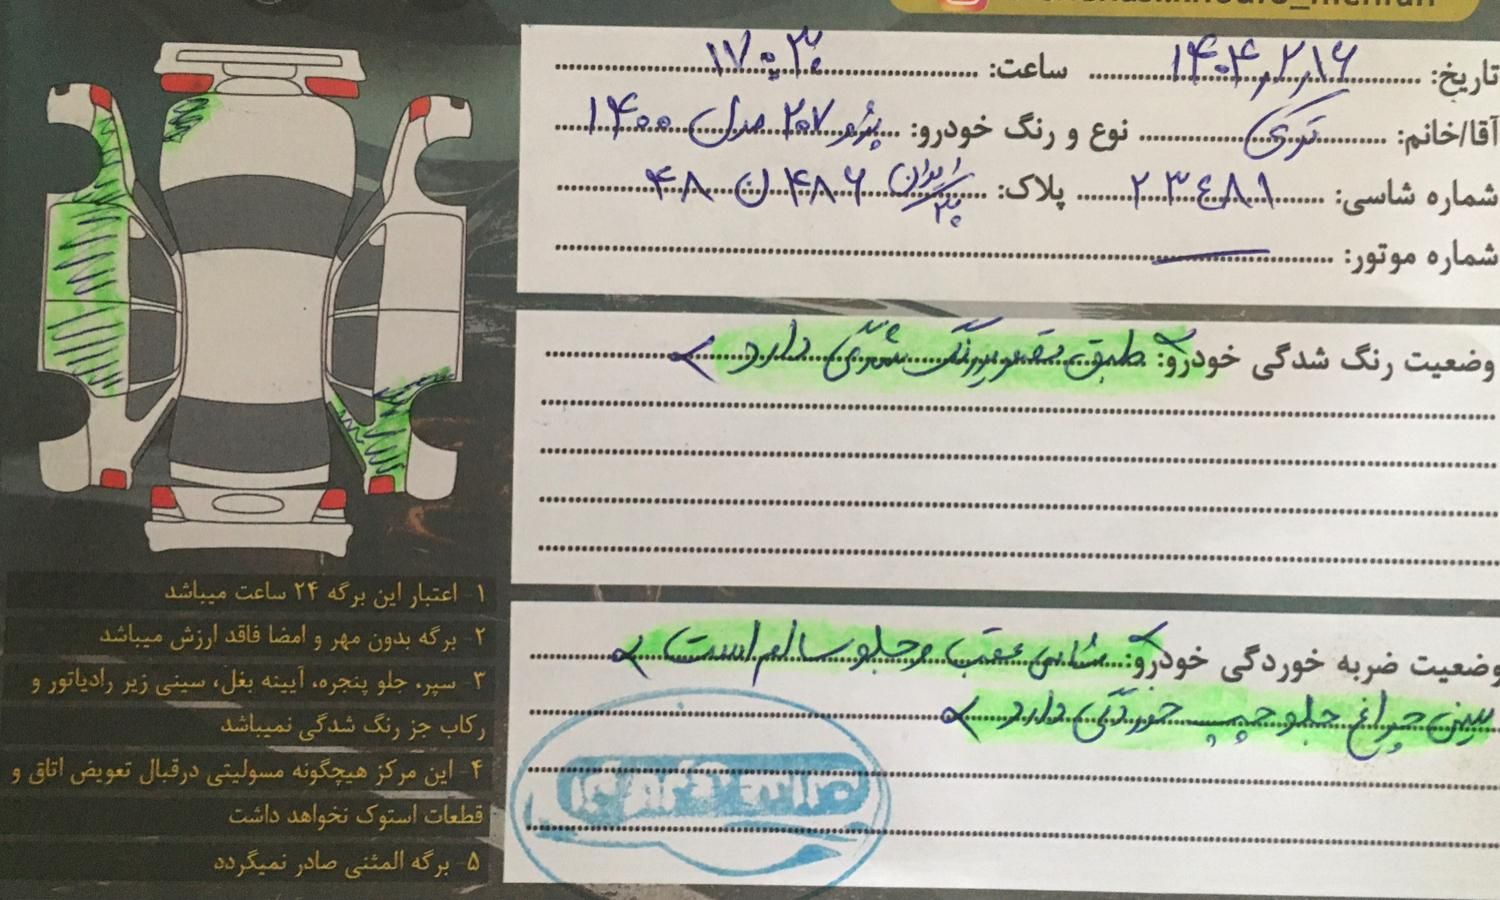 تاریخ: ۱۴۰۴,۲,۱۶ ساعت: ۱۷:۳۰
آقا/خانم: ترکی نوع و رنگ خودرو: پژو ۲۰۷ مدل ۱۴۰۰
شماره شاسی: ۲۳۴۸۱ پلاک: ایران ۳۰ ۴۸۶ ن ۴۸
شماره موتور: ـــ
وضعیت رنگ شدگی خودرو: طبق تصویر رنگ شدگی دارد
وضعیت ضربه خوردگی خودرو: شاسی عقب و جلو سالم است
سینی چراغ جلو چپ خوردگی دارد
۱- اعتبار این برگه ۲۴ ساعت میباشد
۲- برگه بدون مهر و امضا فاقد ارزش میباشد
۳- سپر، جلو پنجره، آیینه بغل، سینی زیر رادیاتور و
رکاب جز رنگ شدگی نمیباشد
۴- این مرکز هیچگونه مسولیتی درقبال تعویض اتاق و
قطعات استوک نخواهد داشت
۵- برگه المثنی صادر نمیگردد